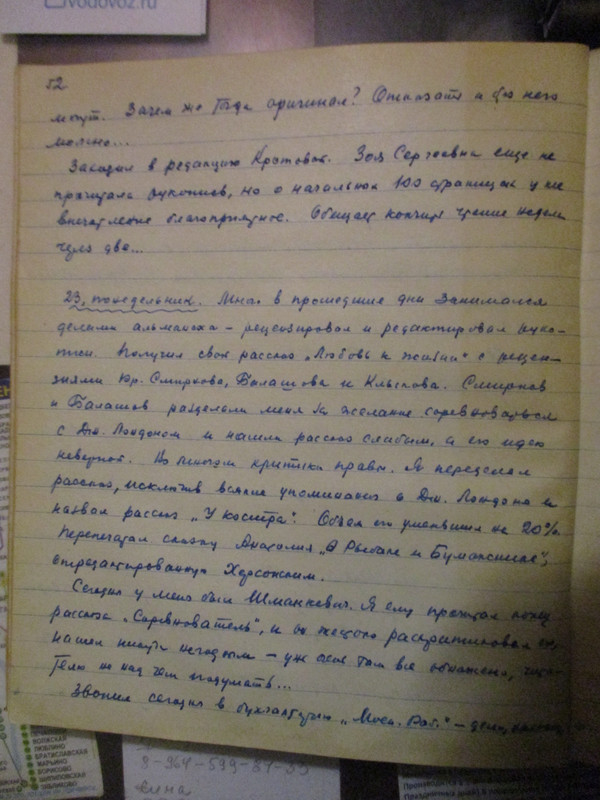 vodovoz.ru
52
могут. Зачем же тогда оригинал? Отказать и без него
можно...
Заходил в редакцию Кротовой. Зоя Сергеевна еще не
прочитала рукописи, но о начальных 100 страницах у нее
впечатление благоприятное. Обещает кончить чтение недели
через две...
23, понедельник. Много в прошедшие дни занимался
делами альманаха – рецензировал и редактировал руко-
писи. Получил свой рассказ „Любовь к жизни“ с рецен-
зиями Юр. Смирнова, Балашова и Клыпова. Смирнов
и Балашов разделали меня за желание соревноваться
с Дж. Лондоном и нашли рассказ слабым, а его идею
неверной. Во многом критики правы. Я переделал
рассказ, исключив всякие упоминания о Дж. Лондоне и
назвал рассказ „У костра“. Объем его уменьшил на 20%.
Перепечатал сказку Анатолия „О Рыбаке и Бумажнике“,
отредактированную Херсонским.
Сегодня у меня был Шманкевич. Я ему прочитал
рассказ „Соревнователь“, и он жестоко раскритиковал его,
нашел никуда негодным – уж очень там все обнажено, чита-
телю не над чем подумать...
Звонил сегодня в бухгалтерию „Моск. Раб.“ –
ВОЛЖСКАЯ
ЛЮБЛИНО
БРАТИСЛАВСКАЯ
МАРЬИНО
БОРИСОВО
ШИПИЛОВСКАЯ
ЗЯБЛИКОВО
Елена